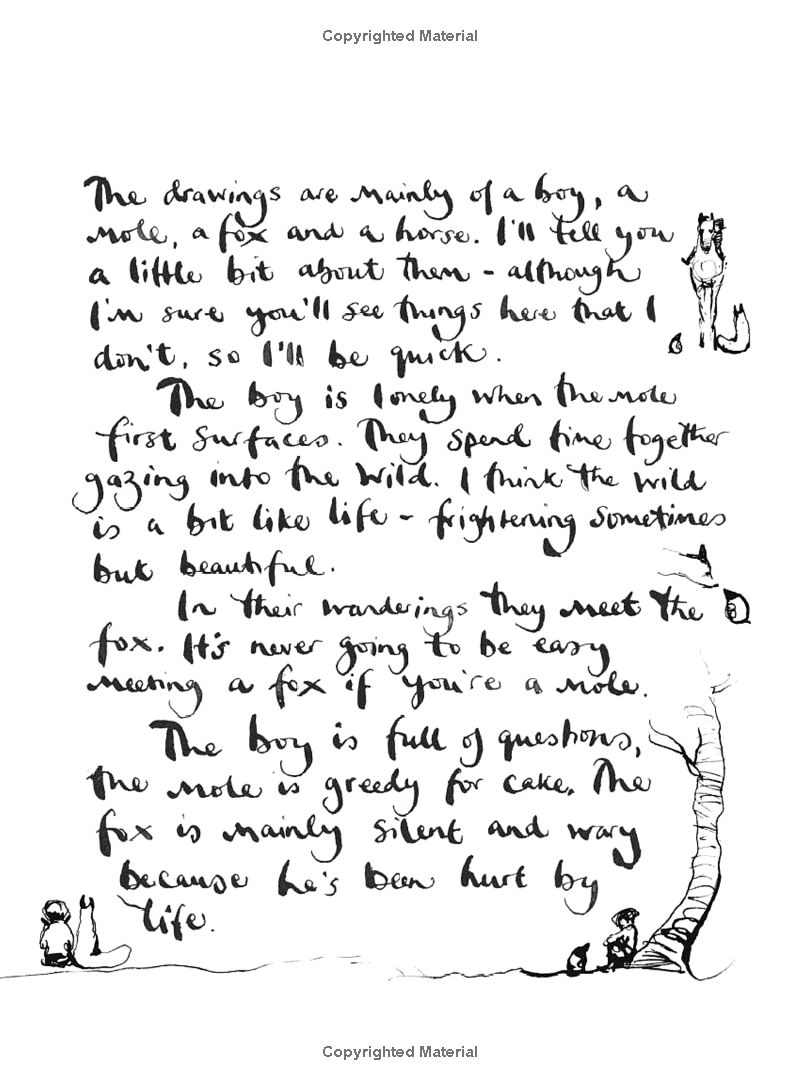 Copyrighted Material
The drawings are mainly of a boy, a
mole, a fox and a horse. I'll tell you
a little bit about them - although
I'm sure you'll see things here that I
don't, so I'll be quick.
The boy is lonely when the mole
first surfaces. They spend time together
gazing into the wild. I think the wild
is a bit like life - frightening sometimes
but beautiful.
In their wanderings they meet the
fox. It's never going to be easy
meeting a fox if you're a mole.
The boy is full of questions,
the mole is greedy for cake. The
fox is mainly silent and wary
because he's been hurt by
life.
Copyrighted Material